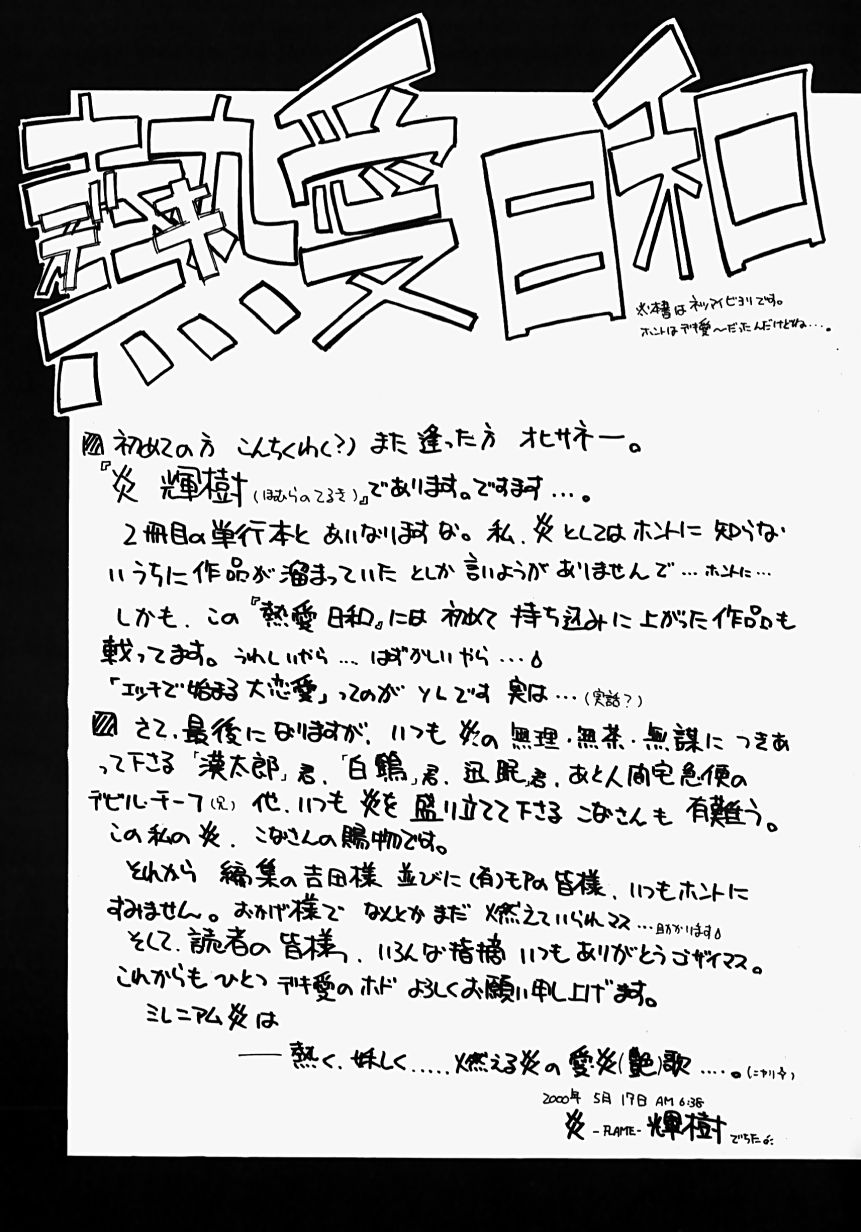 熱愛日和
デキ
※本書はネツアイビヨリです。
ホントはデキ愛〜だったんだけどね…。
初めての方 こんちくわ(?) また逢った方 オヒサネー。
『炎 輝樹(ほむらのてるき)』であります。ですます…。
2冊目の単行本とあいなりますな。私、炎としてはホントに知らな
いうちに作品が溜まっていたとしか言いようがありませんで…ホントに…
しかも、この『熱愛日和』には初めて持ち込みに上がった作品も
載ってます。うれしいやら…はずかしいやら…
「エッチで始まる大恋愛」ってのがソレです実は…(実話?)
さて、最後になりますが、いつも炎の無理・無茶・無謀につきあ
って下さる「漢太郎」君、「白鶴」君、迅眠君、あと人間宅急便の
デビル・チーフ(兄)他、いつも炎を盛り立てて下さるみなさんも有難う。
この私の炎、みなさんの賜物です。
それから編集の吉田様並びに(有)モアの皆様、いつもホントに
すみません。おかげ様でなんとかまだ燃えていられマス…助かります
そして、読者の皆様っ、いろんな指摘いつもありがとうゴザイマス。
これからもひとつデキ愛のホドよろしくお願い申し上げます。
ミレニアム炎は
――熱く、妖しく.....燃える炎の愛炎(艶)歌....。(ニヤリ)
2000年 5月 17日 AM 6:38
炎 -FLAME- 輝樹 でちたよ